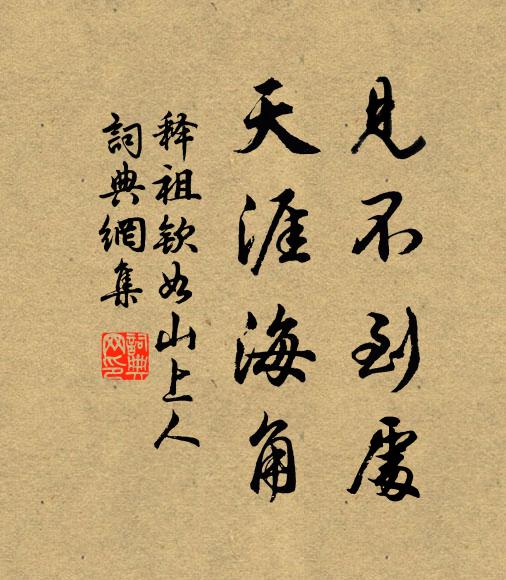 見不到處
天涯海角
释祖钦如山上人
詞典網集
詞典网印